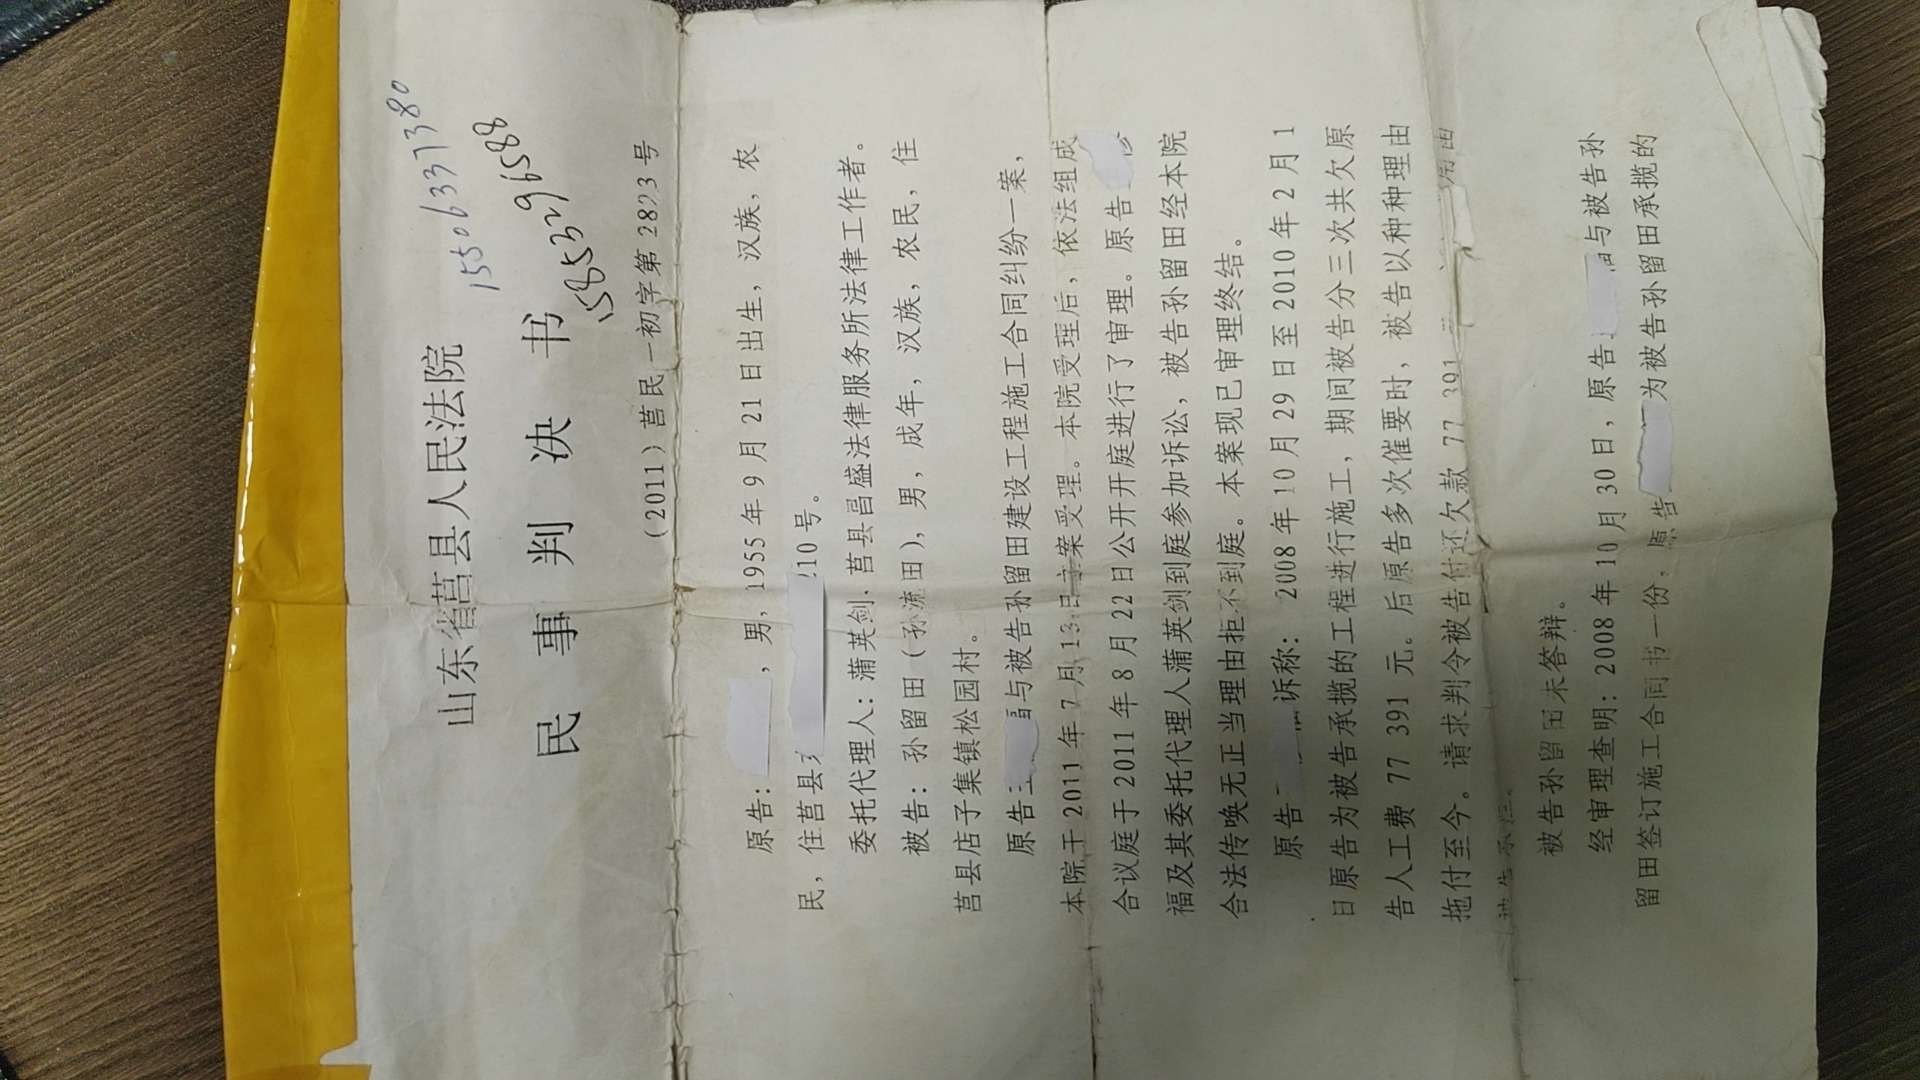 山东省莒县人民法院
15506337380
民事判决书
15853296588
(2011)莒民一初字第2823号
原告：，男，1955年9月21日出生，汉族，农
民，住莒县 10号。
委托代理人：蒲英剑，莒县昌盛法律服务所法律工作者。
被告：孙留田（孙流田），男，成年，汉族，农民，住
莒县店子集镇松园村。
原告 与被告孙留田建设工程施工合同纠纷一案，
本院于2011年7月13日立案受理。本院受理后，依法组成
合议庭于2011年8月22日公开开庭进行了审理。原告
福及其委托代理人蒲英剑到庭参加诉讼，被告孙留田经本院
合法传唤无正当理由拒不到庭。本案现已审理终结。
原告 诉称：2008年10月29日至2010年2月1
日原告为被告承揽的工程进行施工，期间被告分三次共欠原
告人工费77 391元。后原告多次催要时，被告以种种理由
拖付至今。请求判令被告付还欠款77 391
被告承担。
被告孙留田未答辩。
经审理查明：2008年10月30日，原告 与被告孙
留田签订施工合同书一份，原告 为被告孙留田承揽的